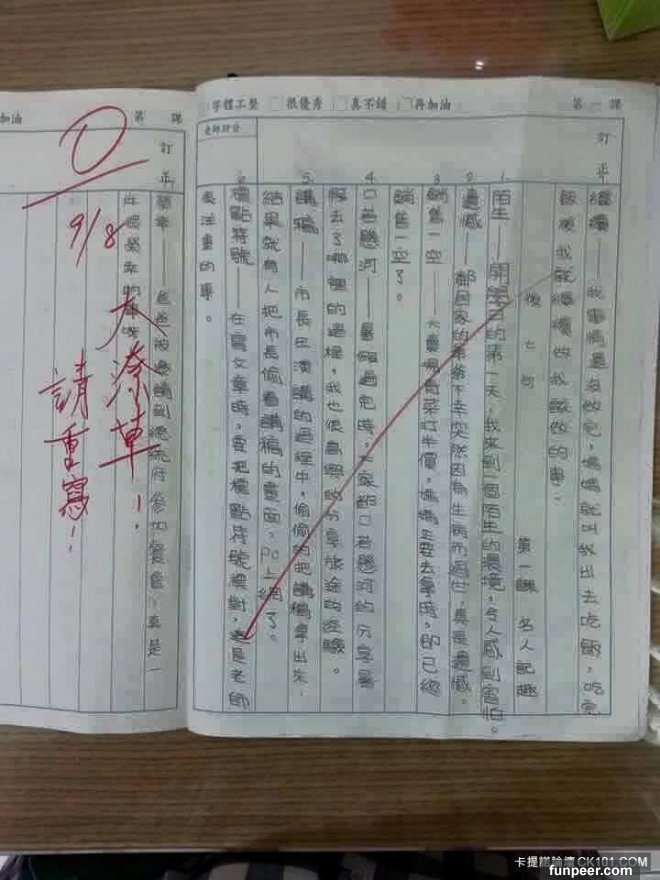 字體工整 □很優秀 □真不錯 □再加油 第一課
老師評分
訂正
繼續——我事情還沒做完，媽媽就叫我出去吃飯，吃完
飯後我就繼續做我該做的事。
第一課 名人記趣
1. 陌生——開學日的第一天，我來到一個陌生的環境，令人感到害怕。
2. 遺憾——鄰居家的爺爺不幸突然因為生病而過世，真是遺憾。
3. 銷售一空——大賣場白菜打半價，媽媽正要去拿時，卻已經
銷售一空了。
4. 口若懸河——暑假過完時，大家都口若懸河的分享暑
假去了哪裡的過程，我也很高興的分享旅途的經驗。
5. 講稿——市長在演講的過程中，偷偷的把講稿拿出來，
結果就有人把市長偷看講稿的畫面，PO上網了。
6. 標點符號——在寫文章時，要把標點符號標對，這是老師
加油 第 課
訂正
榮幸——爸爸被邀請到總統府參加餐會，真是一
件很榮幸的事
0
9/8
太潦草！
請重寫！
卡提諾論壇CK101.COM
funpeer.com